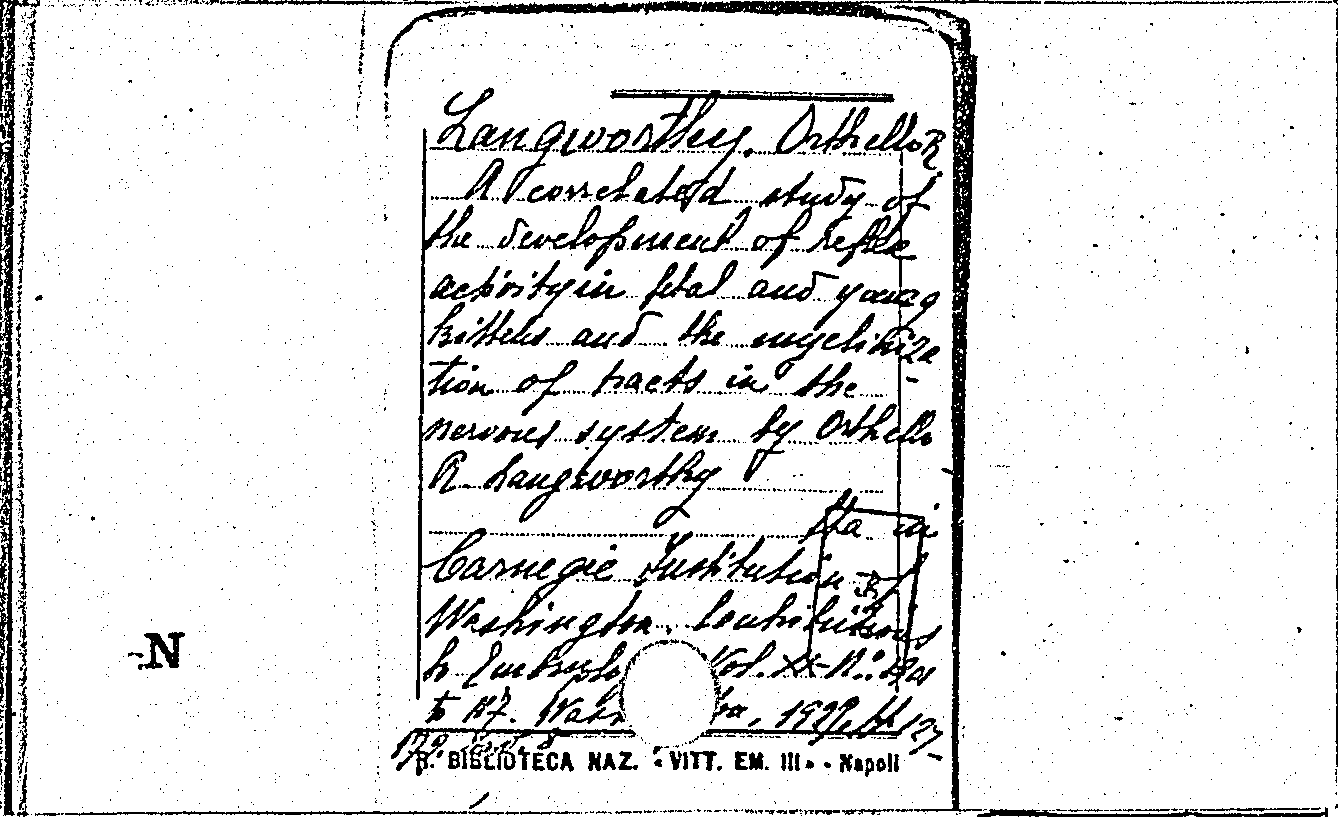 Langworthy, Orthello R.
A correlated study of
the development of reflex
activity in fetal and young
kittens and the myeliniza-
tion of tracts in the
nervous system by Orthello
R. Langworthy
Sta in
Carnegie Institution of
Washington. Contributions
to Vol. XX - N.°
to Wash 1929, 127-
179.
R. BIBLIOTECA NAZ. «VITT. EM. III» - Napoli
N